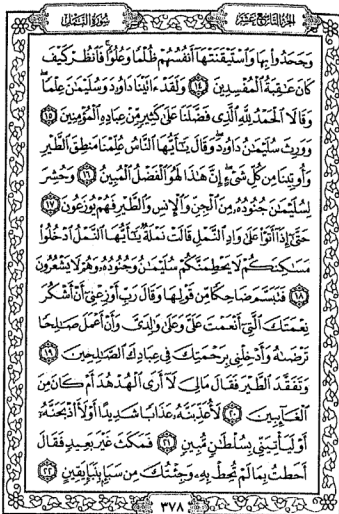 الجزء التاسع عشر سورة النمل
وَجَحَدُوا۟ بِهَا وَٱسْتَيْقَنَتْهَآ أَنفُسُهُمْ ظُلْمًا وَعُلُوًّا ۚ فَٱنظُرْ كَيْفَ
كَانَ عَـٰقِبَةُ ٱلْمُفْسِدِينَ ١٤ وَلَقَدْ ءَاتَيْنَا دَاوُۥدَ وَسُلَيْمَـٰنَ عِلْمًا ۖ
وَقَالَا ٱلْحَمْدُ لِلَّهِ ٱلَّذِى فَضَّلَنَا عَلَىٰ كَثِيرٍ مِّنْ عِبَادِهِ ٱلْمُؤْمِنِينَ ١٥
وَوَرِثَ سُلَيْمَـٰنُ دَاوُۥدَ ۖ وَقَالَ يَـٰٓأَيُّهَا ٱلنَّاسُ عُلِّمْنَا مَنطِقَ ٱلطَّيْرِ
وَأُوتِينَا مِن كُلِّ شَىْءٍ ۖ إِنَّ هَـٰذَا لَهُوَ ٱلْفَضْلُ ٱلْمُبِينُ ١٦ وَحُشِرَ
لِسُلَيْمَـٰنَ جُنُودُهُۥ مِنَ ٱلْجِنِّ وَٱلْإِنسِ وَٱلطَّيْرِ فَهُمْ يُوزَعُونَ ١٧
حَتَّىٰٓ إِذَآ أَتَوْا۟ عَلَىٰ وَادِ ٱلنَّمْلِ قَالَتْ نَمْلَةٌ يَـٰٓأَيُّهَا ٱلنَّمْلُ ٱدْخُلُوا۟
مَسَـٰكِنَكُمْ لَا يَحْطِمَنَّكُمْ سُلَيْمَـٰنُ وَجُنُودُهُۥ وَهُمْ لَا يَشْعُرُونَ
١٨ فَتَبَسَّمَ ضَاحِكًا مِّن قَوْلِهَا وَقَالَ رَبِّ أَوْزِعْنِىٓ أَنْ أَشْكُرَ
نِعْمَتَكَ ٱلَّتِىٓ أَنْعَمْتَ عَلَىَّ وَعَلَىٰ وَٰلِدَىَّ وَأَنْ أَعْمَلَ صَـٰلِحًا
تَرْضَىٰهُ وَأَدْخِلْنِى بِرَحْمَتِكَ فِى عِبَادِكَ ٱلصَّـٰلِحِينَ ١٩
وَتَفَقَّدَ ٱلطَّيْرَ فَقَالَ مَالِىَ لَآ أَرَى ٱلْهُدْهُدَ أَمْ كَانَ مِنَ
ٱلْغَآئِبِينَ ٢٠ لَأُعَذِّبَنَّهُۥ عَذَابًا شَدِيدًا أَوْ لَأَا۟ذْبَحَنَّهُۥٓ
أَوْ لَيَأْتِيَنِّى بِسُلْطَـٰنٍ مُّبِينٍ ٢١ فَمَكَثَ غَيْرَ بَعِيدٍ فَقَالَ
أَحَطتُ بِمَا لَمْ تُحِطْ بِهِۦ وَجِئْتُكَ مِن سَبَإٍۭ بِنَبَإٍ يَقِينٍ ٢٢
٣٧٨